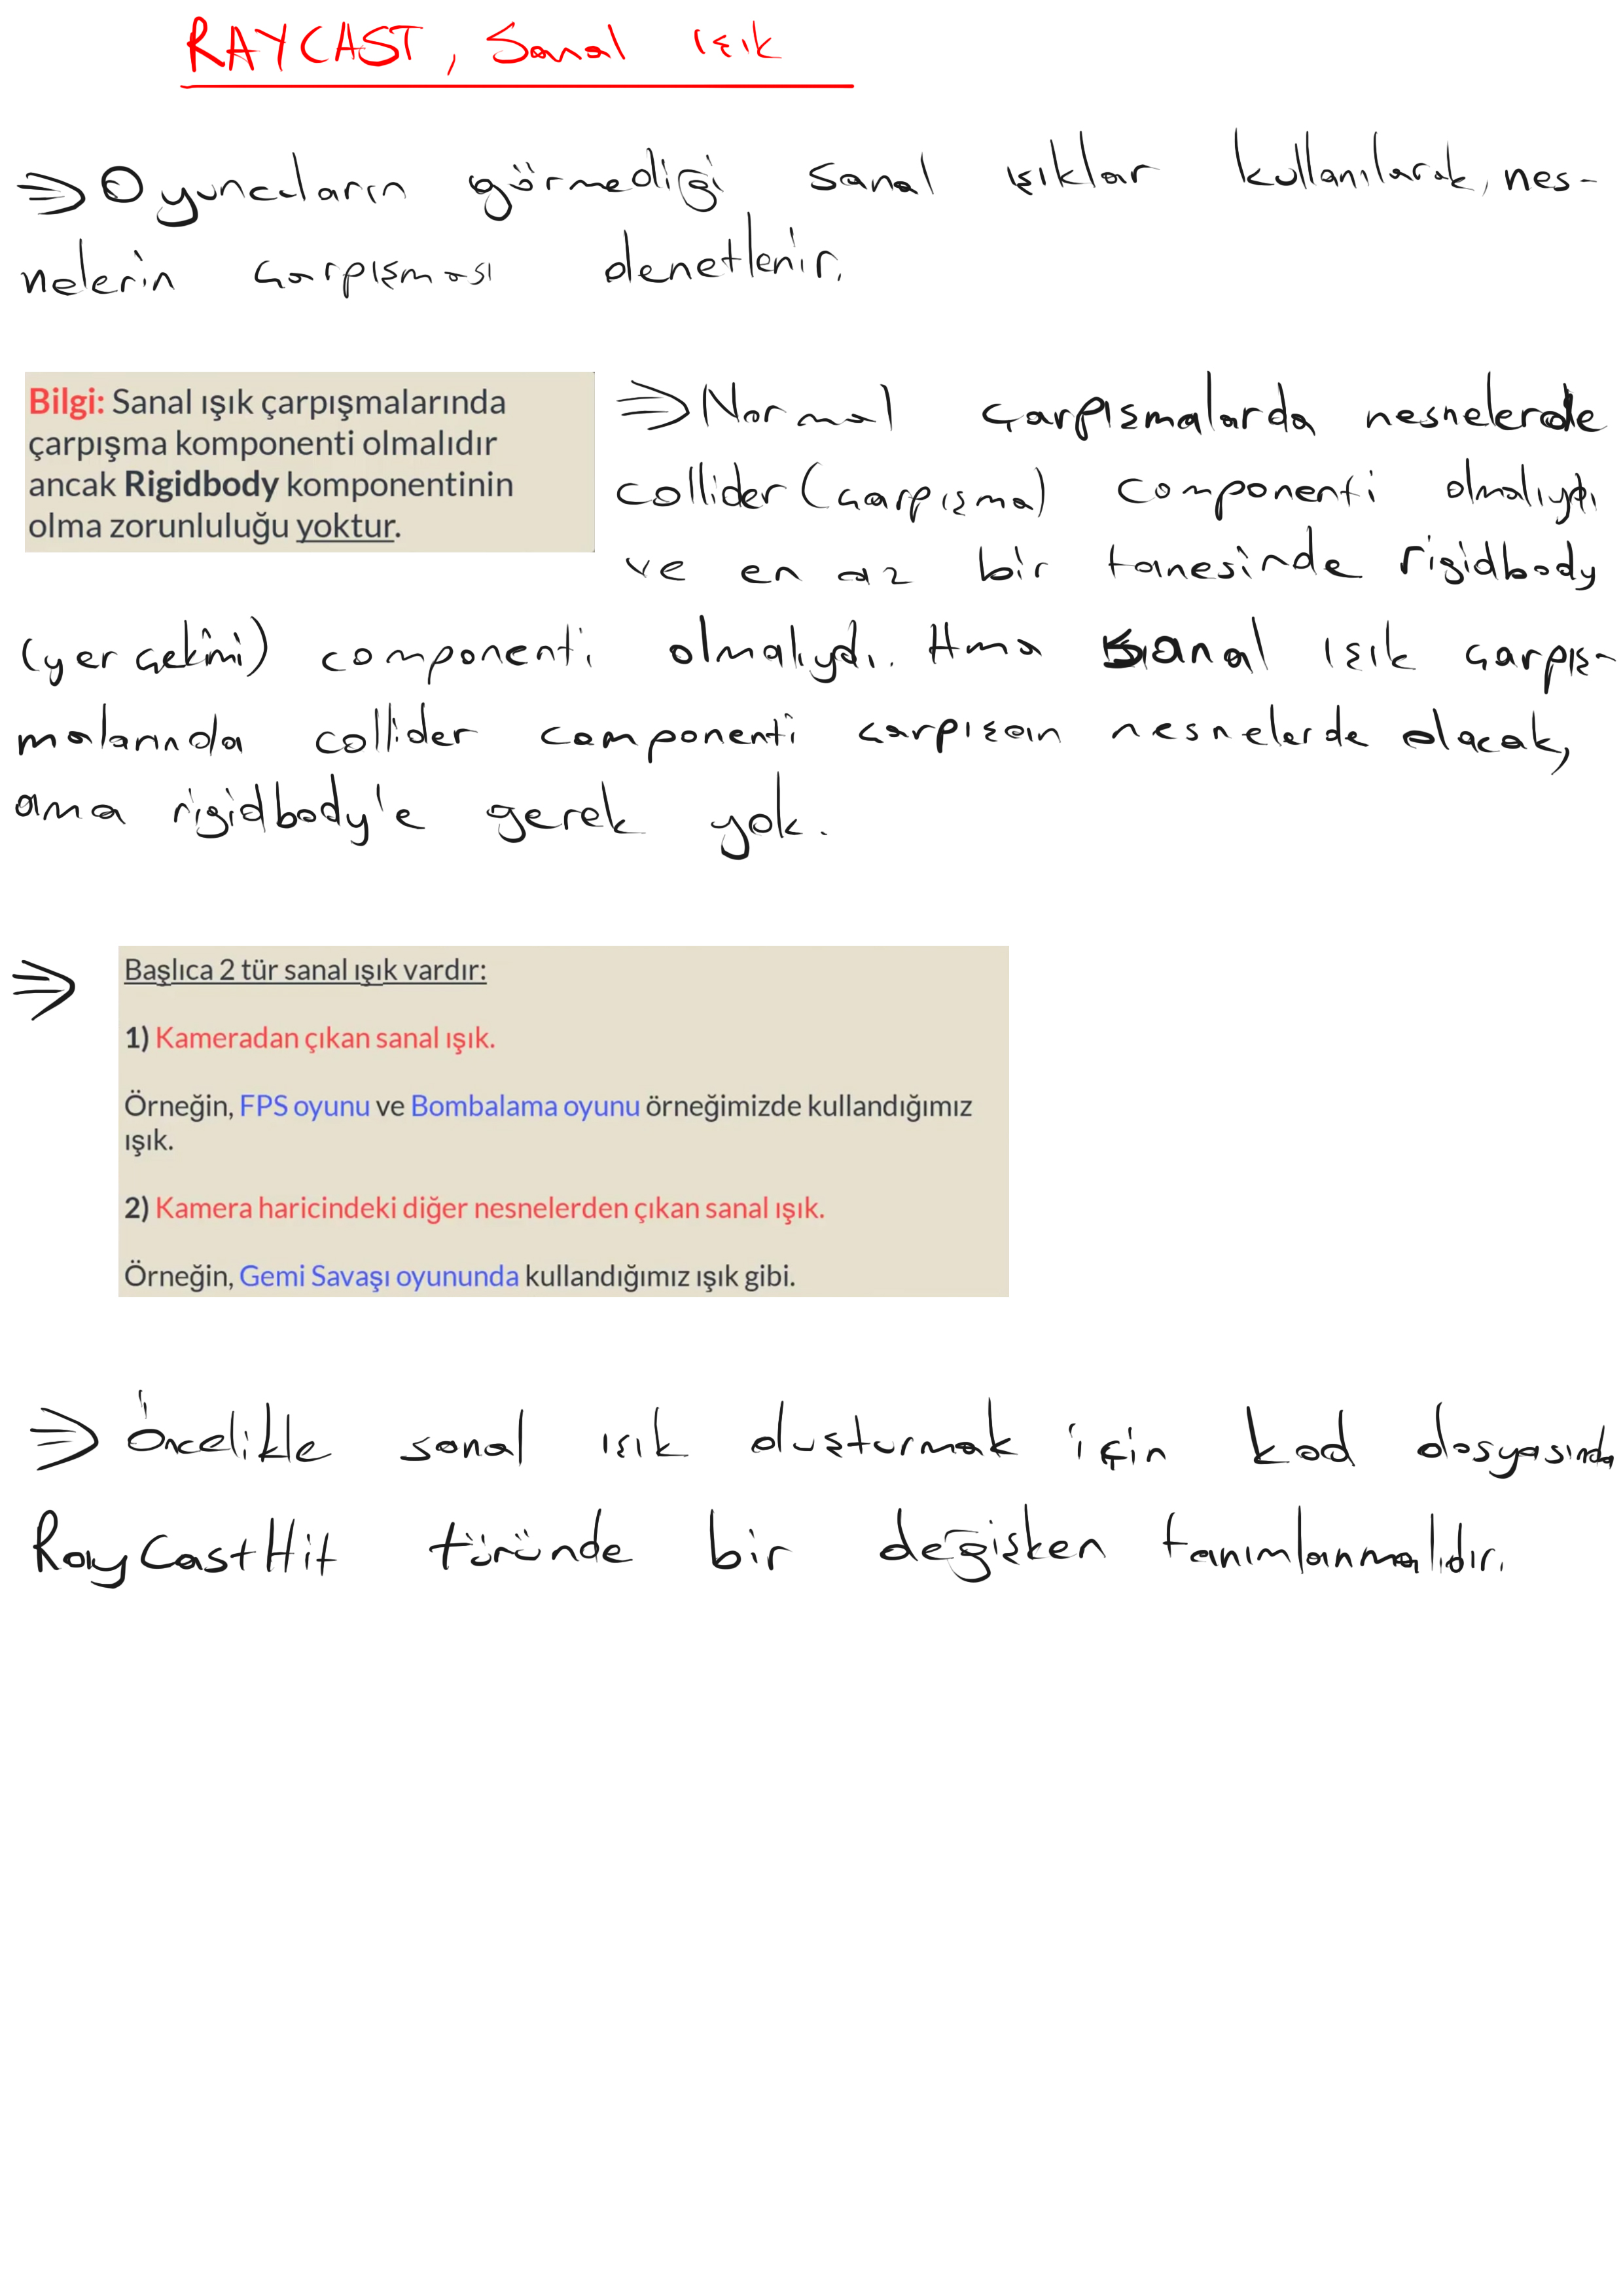 RAYCAST, Sanal ışık
⇒ Oyuncuların görmediği sanal ışıklar kullanılarak, nes-
nelerin çarpışması denetlenir.
Bilgi: Sanal ışık çarpışmalarında
çarpışma komponenti olmalıdır
ancak Rigidbody komponentinin
olma zorunluluğu yoktur.
⇒ Normal çarpışmalarda nesnelerde
collider (çarpışma) componenti olmalıydı
ve en az bir tanesinde rigidbody
(yer çekimi) componenti olmalıydı. Ama sanal ışık çarpış-
malarında collider componenti çarpışan nesnelerde olacak,
ama rigidbody'e gerek yok.
⇒
Başlıca 2 tür sanal ışık vardır:
1) Kameradan çıkan sanal ışık.
Örneğin, FPS oyunu ve Bombalama oyunu örneğimizde kullandığımız
ışık.
2) Kamera haricindeki diğer nesnelerden çıkan sanal ışık.
Örneğin, Gemi Savaşı oyununda kullandığımız ışık gibi.
⇒ Öncelikle sanal ışık oluşturmak için kod dosyasında
RayCastHit türünde bir değişken tanımlanmalıdır.